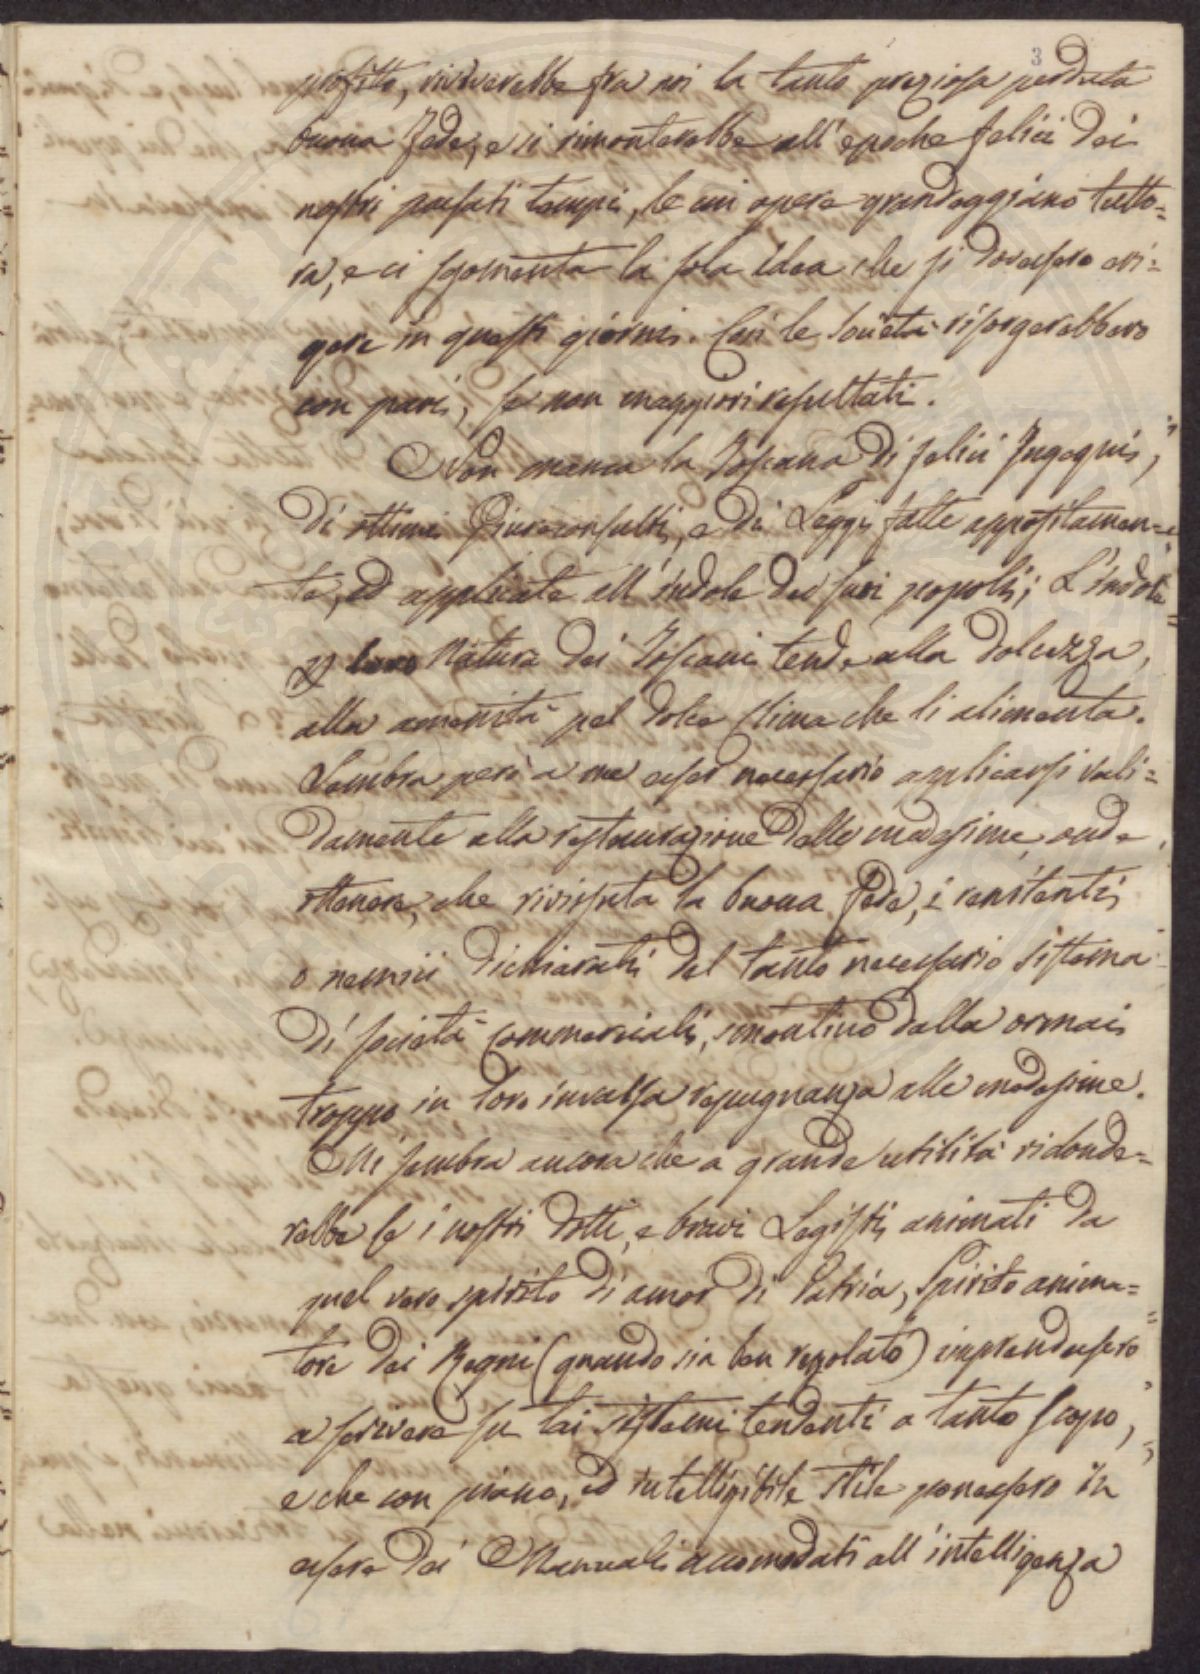 3
profitto, rivivrebbe fra noi la tanto preziosa perduta
buona fede, e si rimonterebbe all'epoche felici dei
nostri passati tempi, le cui opere grandeggiano tutto=
ra, e ci sgomenta la sola idea che si dovessero eri=
gere in questi giorni. Così le Società risorgerebbero
con pari, se non maggiori resultati.
Non manca la Toscana di felici Ingegni,
di ottimi Giureconsulti, e di Leggi fatte appositamen=
te, ed applicate all'indole dei suoi popoli; L'indole
Natura dei Toscani tende alla dolcezza,
alla amenità pel dolce Clima che li alimenta.
Sembra però a me esser necessario applicarsi vali=
damente alla restaurazione delle medesime, onde
ottenere, che rivissuta la buona fede, i renitenti
o nemici dichiarati del tanto necessario sistema
di società commerciali, smontino dalla ormai
troppo in loro invalsa repugnanza alle medesime.
Mi sembra ancora che a grande utilità ridonde=
rebbe se i nostri dotti, e bravi Legisti animati da
quel vero spirito di amor di Patria, Spirito anima=
tore dei Regni (quando sia ben regolato) imprendessero
a scrivere su tai sistemi tendenti a tanto scopo,
e che con piano, ed intelligibile stile ponessero in
essere dei Manuali accomodati all'intelligenza